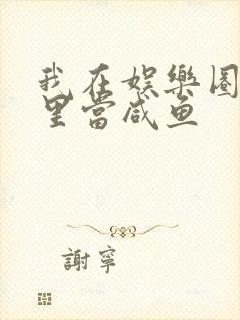 我在娱樂圈
里當咸鱼
謝寧